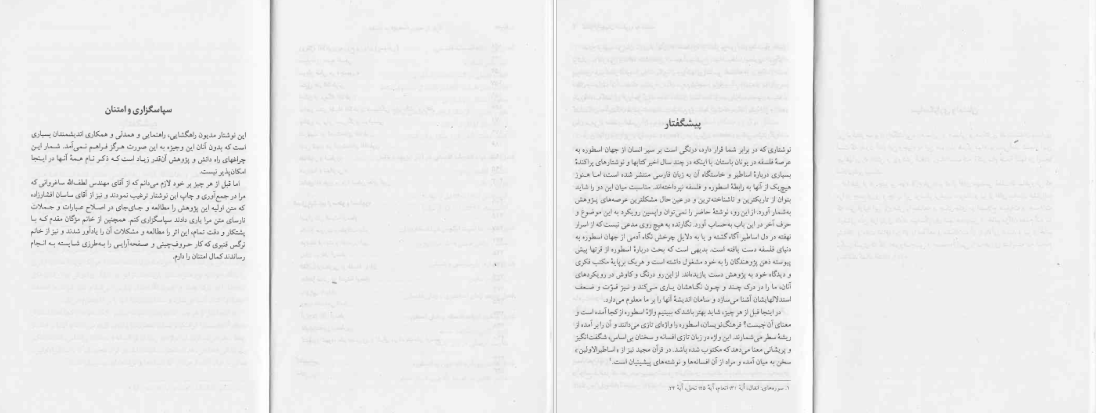 سپاسگزاری و امتنان
این نوشتار مدیون راهگشایی، راهنمایی و همدلی و همکاری اندیشمندان بسیاری
است که بدون آنان این وجیزه به این صورت هرگز فراهم نمی‌آمد. شمار این
چراغهای راه دانش و پژوهش آن‌قدر زیاد است که ذکر نام همهٔ آنها در اینجا
امکان‌پذیر نیست.
اما قبل از هر چیز بر خود لازم می‌دانم که از آقای مهندس لطف‌الله ساغروانی که
مرا در جمع‌آوری و چاپ این نوشتار ترغیب نمودند و نیز از آقای ساسان افشارزاده
که متن اولیه این پژوهش را مطالعه و جای‌جای در اصلاح عبارات و جملات
نارسای متن مرا یاری دادند سپاسگزاری کنم. همچنین از خانم مژگان مقدم که با
پشتکار و دقت تمام، این اثر را مطالعه و مشکلات آن را یادآور شدند و نیز از خانم
نرگس قنبری که کار حروف‌چینی و صفحه‌آرایی را به‌طرزی شایسته به انجام
رساندند کمال امتنان را دارم.
پیشگفتار
نوشتاری که در برابر شما قرار دارد، درنگی است بر سیر انسان از جهان اسطوره به
عرصهٔ فلسفه در یونان باستان. با اینکه در چند سال اخیر کتابها و نوشتارهای پراکندهٔ
بسیاری دربارهٔ اساطیر و خاستگاه آن به زبان فارسی منتشر شده است، اما هنوز
هیچ‌یک از آنها به رابطهٔ اسطوره و فلسفه نپرداخته‌اند. مناسبت میان این دو را شاید
بتوان از تاریکترین و ناشناخته‌ترین و در عین حال مشکلترین عرصه‌های پژوهش
به‌شمار آورد؛ از این رو، نوشتهٔ حاضر را نمی‌توان واپسین رویکرد به این موضوع و
حرف آخر در این باب به‌حساب آورد. نگارنده به هیچ روی مدعی نیست که از اسرار
نهفته در دل اساطیر آگاه گشته و یا به دلایل چرخش نگاه آدمی از جهان اسطوره به
دنیای فلسفه دست یافته است. بدیهی است که بحث دربارهٔ اسطوره از قرنها پیش
پیوسته ذهن پژوهندگان را به خود مشغول داشته است و هریک برپایهٔ مکتب فکری
و دیدگاه خود به پژوهش دست یازیده‌اند. از این رو درنگ و کاوش در رویکردهای
آنان، ما را در درک چند و چون نگاهشان یاری می‌کند و نیز قوّت و ضعف
استدلالهایشان آشنا می‌سازد و سامان اندیشهٔ آنها را بر ما معلوم می‌دارد.
در اینجا قبل از هر چیز، شاید بهتر باشد که ببینیم واژهٔ اسطوره از کجا آمده است و
معنای آن چیست؟ فرهنگ‌نویسان، اسطوره را واژه‌ای تازی می‌دانند و آن را بر آمده از
ریشهٔ سطر می‌شمارند. این واژه در زبان تازی افسانه و سخنان بی‌اساس، شگفت‌انگیز
و پریشانی معنا می‌دهد که مکتوب شده باشد. در قرآن مجید نیز از «اساطیرالاولین»
سخن به میان آمده و مراد از آن افسانه‌ها و نوشته‌های پیشینیان است.۱
۱. سوره‌های: انفال، آیهٔ ۳۱؛ انعام، آیهٔ ۲۵؛ نحل، آیهٔ ۲۴.